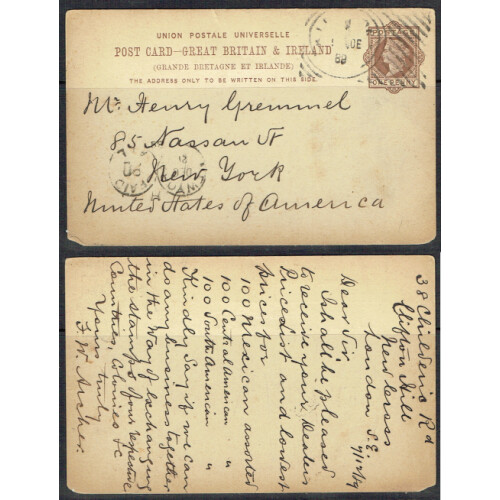 UNION POSTALE UNIVERSELLE
POST CARD—GREAT BRITAIN & IRELAND
(GRANDE BRETAGNE ET IRLANDE)
THE ADDRESS ONLY TO BE WRITTEN ON THIS SIDE.
POSTAGE
ONE PENNY
DE
89
Mr Henry Gremmel
85 Nassau St
New York
United States of America
PAID
ALL
38 Childeric Rd
Clifton Hill
New Cross
London S.E.
9/12/89
Dear Sir,
I shall be pleased
to receive your Dealers
Price list and lowest
prices for
100 Mexican assorted
100 Central American "
100 South American "
Kindly say if we can
do any business together
in the Way of exchanging
the stamps of our respective
Countries, Colonies &c
Yours truly
F. W. Archer.